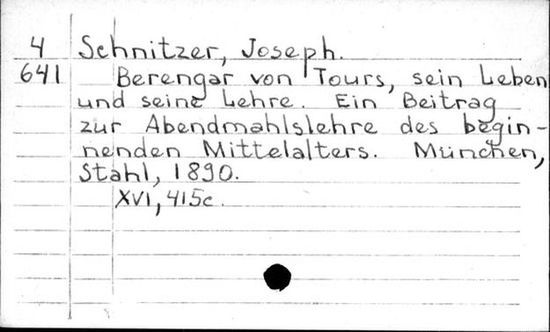 4 Schnitzer, Joseph.
641 Berengar von Tours, sein Leben
und seine Lehre. Ein Beitrag
zur Abendmahlslehre des begin-
nenden Mittelalters. München,
Stahl, 1890.
XVI, 415c.